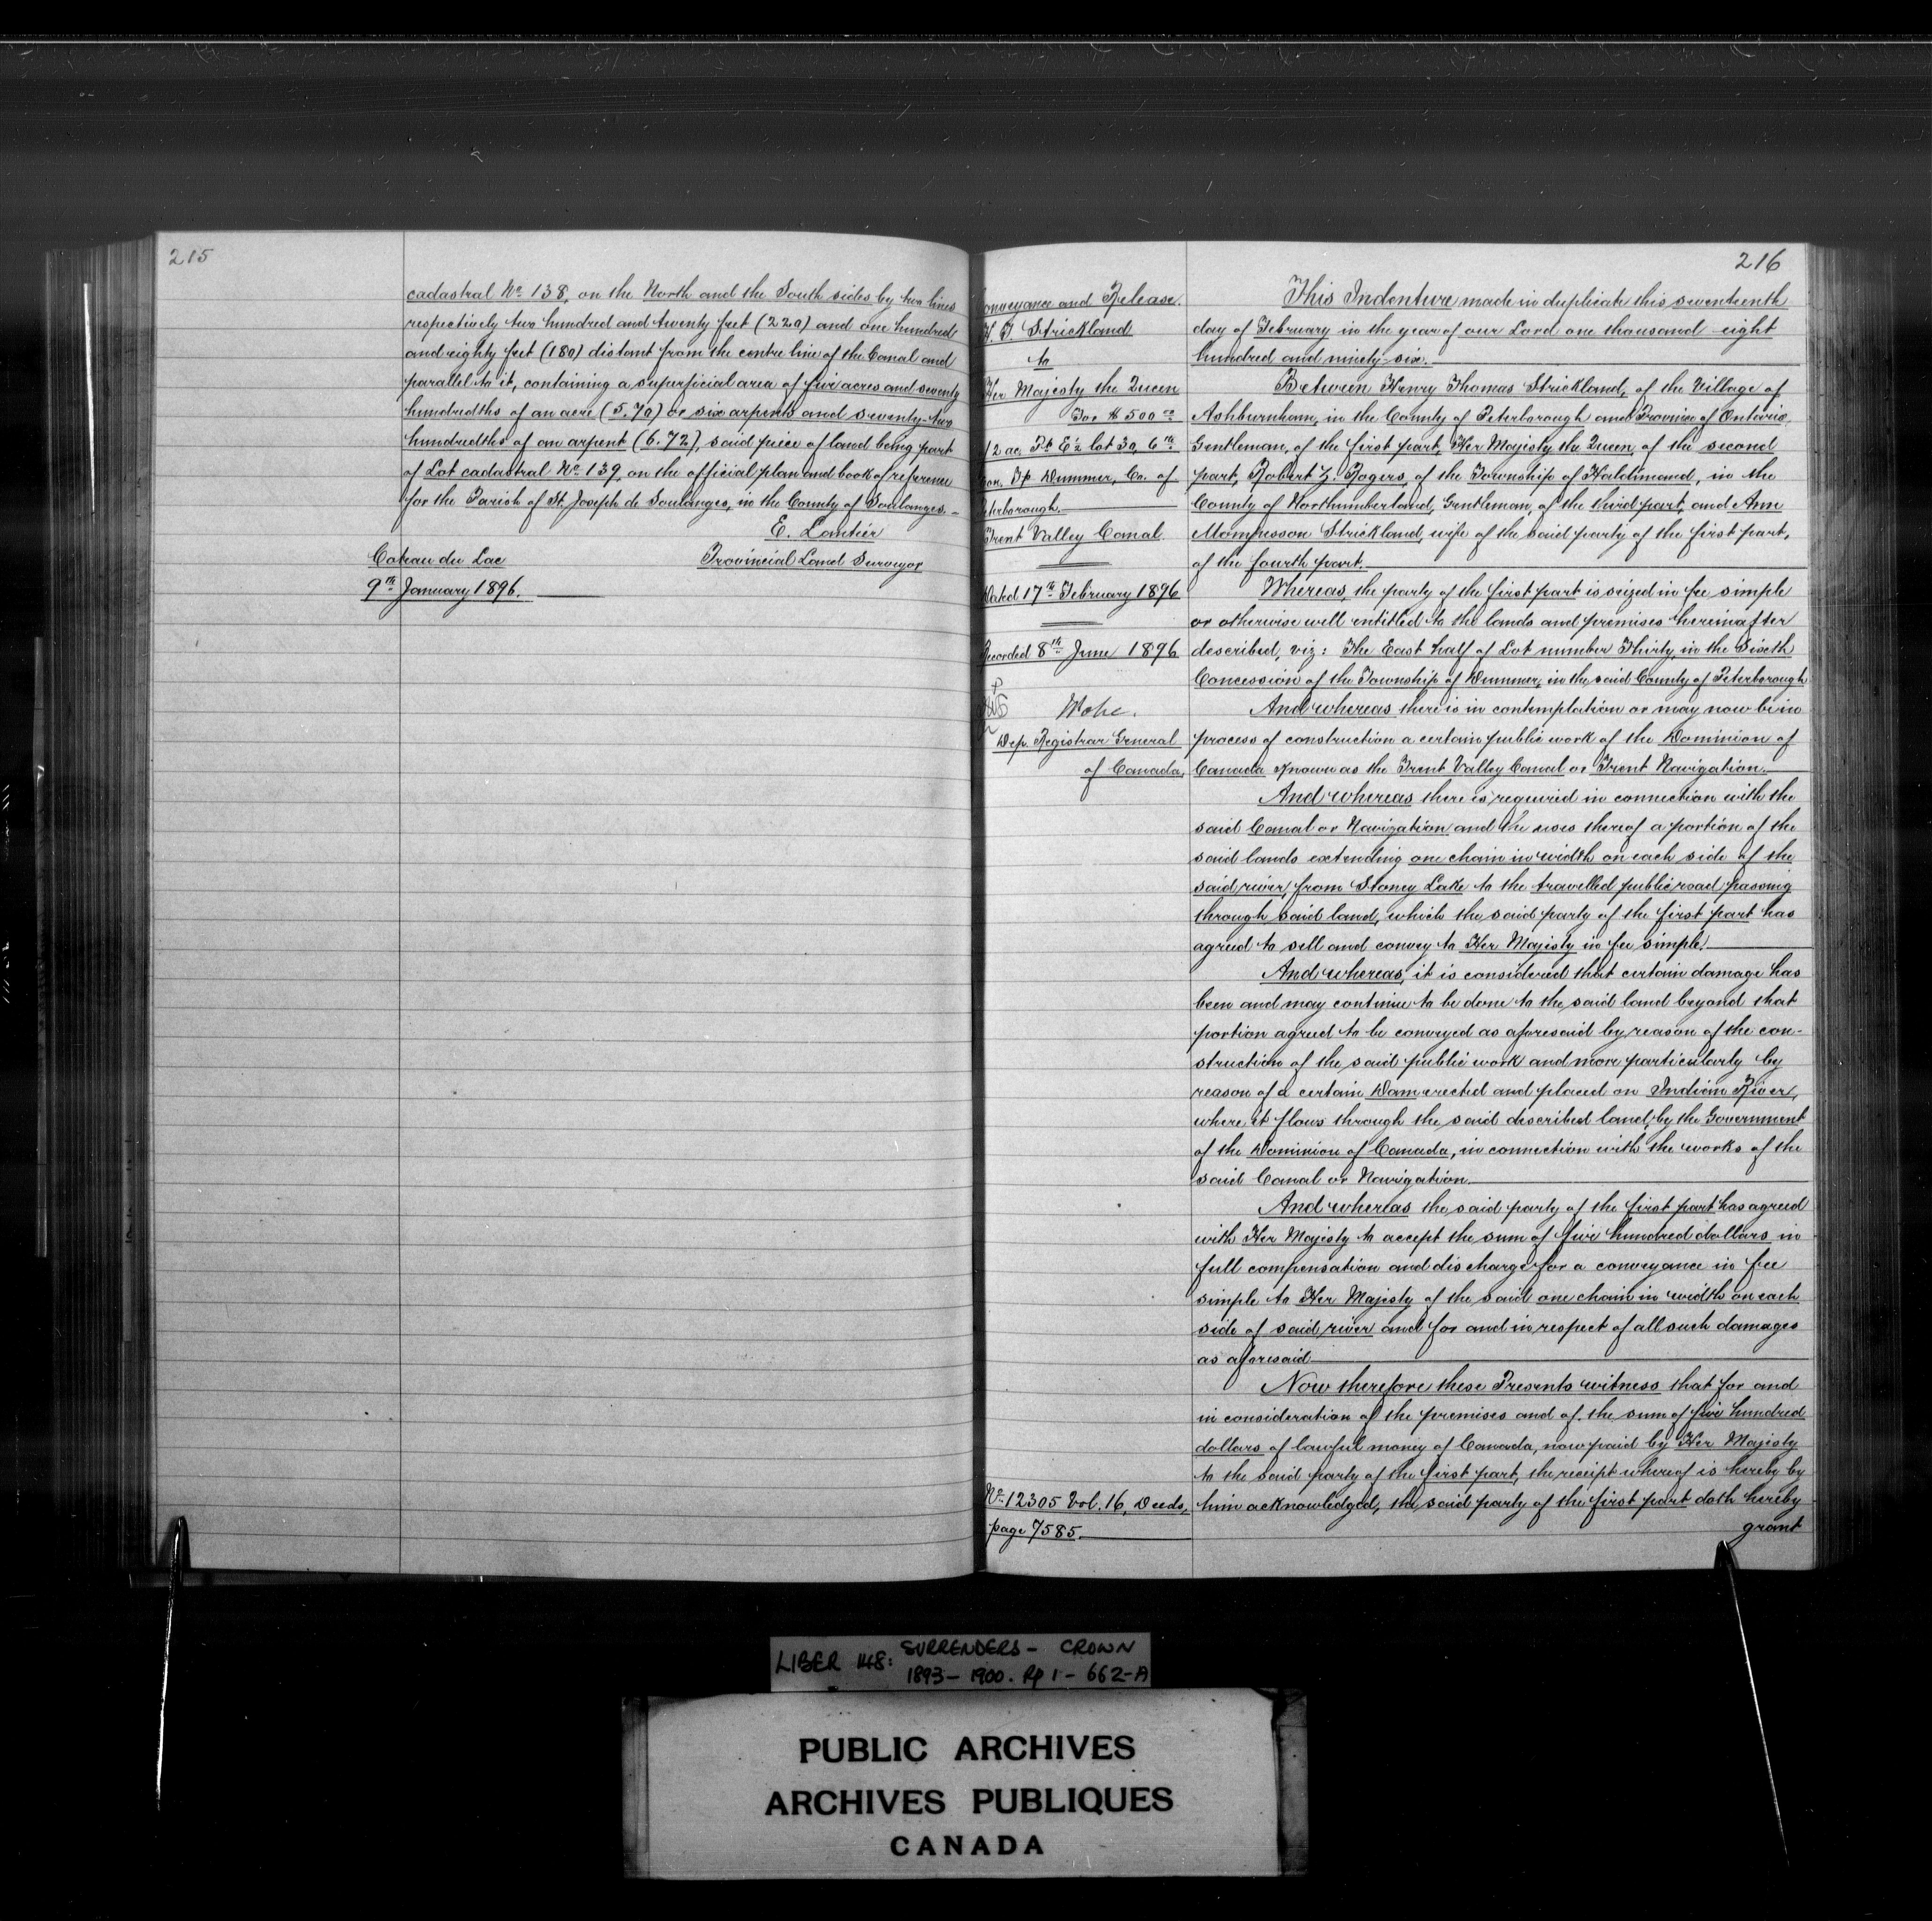 215
cadastral No 138, on the North and the South sides by two lines
respectively two hundred and twenty feet (220) and one hundred
and eighty feet (180) distant from the centre line of the Canal and
parallel to it, containing a superficial area of five acres and seventy
hundredths of an acre (5.70) or six arpents and seventy-two
hundredths of an arpent (6.72), said piece of land being part
of Lot cadastral No 139, on the official plan and book of reference
for the Parish of St. Joseph de Soulanges, in the County of Soulanges.
E. Lantier
Coteau du Lac Provincial Land Surveyor
9th January 1896.
216
onveyance and Release.
H. T. Strickland
to
Her Majesty the Queen
For $500 00
12 ac. Pt E½ lot 30, 6th
con. Tp Dummer, Co. of
eterborough.
Trent Valley Canal.
Dated 17th February 1896
Recorded 8th June 1896
Dep. Registrar General
of Canada,
No 12305 Vol. 16, Deeds,
page 7585.
This Indenture made in duplicate this seventeenth
day of February in the year of our Lord one thousand eight
hundred and ninety-six.
Between Henry Thomas Strickland, of the Village of
Ashburnham, in the County of Peterborough and Province of Ontario
Gentleman, of the first part, Her Majesty the Queen, of the second
part, Robert Z. Rogers, of the Township of Haldimand, in the
County of Northumberland, Gentleman, of the third part, and Ann
Mompesson Strickland, wife of the said party of the first part,
of the fourth part.
Whereas, the party of the first part is seized in fee simple
or otherwise well entitled to the lands and premises hereinafter
described, viz: The East half of Lot number Thirty, in the Sixth
Concession of the Township of Dummer, in the said County of Peterborough
And whereas there is in contemplation or may now be in
process of construction a certain public work of the Dominion of
Canada known as the Trent Valley Canal or Trent Navigation.
And whereas there is required in connection with the
said Canal or Navigation and the uses thereof a portion of the
said lands extending one chain in width on each side of the
said river, from Stoney Lake to the travelled public road passing
through said land, which the said party of the first part has
agreed to sell and convey to Her Majesty in fee simple.
And whereas, it is considered that certain damage has
been and may continue to be done to the said land beyond that
portion agreed to be conveyed as aforesaid by reason of the con-
struction of the said public work and more particularly by
reason of a certain Dam erected and placed on Indian River,
where it flows through the said described land, by the Government
of the Dominion of Canada, in connection with the works of the
said Canal or Navigation.
And whereas the said party of the first part has agreed
with Her Majesty to accept the sum of five hundred dollars in
full compensation and discharge for a conveyance in fee
simple to Her Majesty of the said one chain in width on each
side of said river and for and in respect of all such damages
as aforesaid
Now therefore these Presents witness that for and
in consideration of the premises and of the sum of five hundred
dollars of lawful money of Canada, now paid by Her Majesty
to the said party of the first part, the receipt whereof is hereby by
him acknowledged, the said party of the first part doth hereby
grant
LIBER 148: SURRENDERS - CROWN
1893-1900. Pp 1-662-A
PUBLIC ARCHIVES
ARCHIVES PUBLIQUES
CANADA